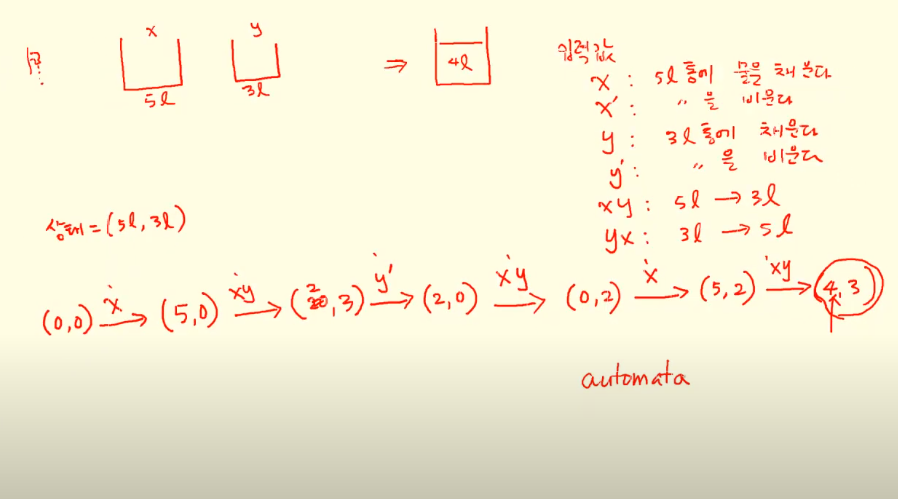 문:
x
y
5l
3l
⇒
4l
입력값
x : 5l 통에 물을 채운다
x' : 〃 을 비운다
y : 3l 통에 채운다
y' : 〃 을 비운다
xy : 5l → 3l
yx : 3l → 5l
상태 = (5l, 3l)
(0,0) x→ (5,0) xy→ (2,3) y'→ (2,0) xy→ (0,2) x→ (5,2) xy→ (4,3)
automata